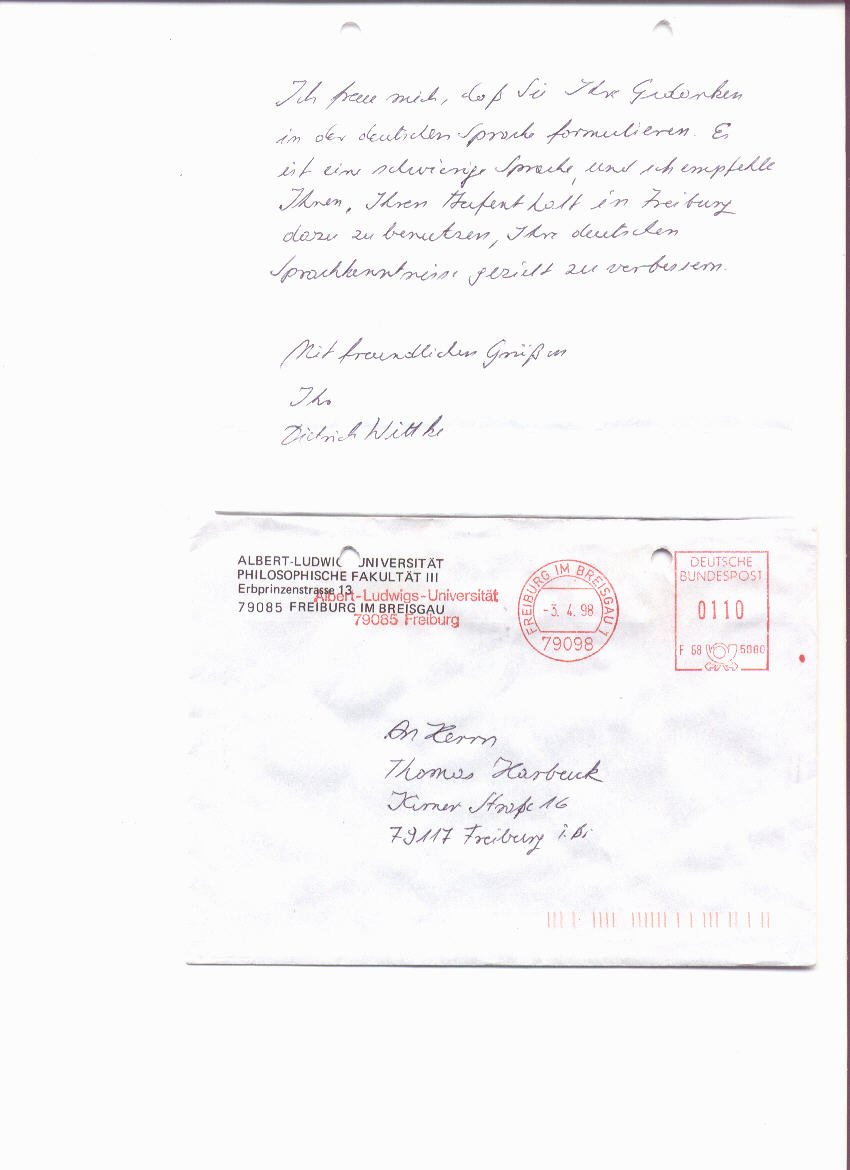 Ich freue mich, daß Sie Ihre Gedanken
in der deutschen Sprache formulieren. Es
ist eine schwierige Sprache, und ich empfehle
Ihnen, Ihren Aufenthalt in Freiburg
dazu zu benutzen, Ihre deutschen
Sprachkenntnisse gezielt zu verbessern.
Mit freundlichen Grüßen
Ihr
Dietrich Wittke
ALBERT-LUDWIG UNIVERSITÄT
PHILOSOPHISCHE FAKULTÄT III
Erbprinzenstrasse 13
Albert-Ludwigs-Universität
79085 FREIBURG IM BREISGAU
79085 Freiburg
FREIBURG IM BREISGAU 1
-3. 4. 98
79098
DEUTSCHE
BUNDESPOST
0110
F 68 5060
An Herrn
Thomas Harbeuk
Kirner Straße 16
79117 Freiburg i. Br